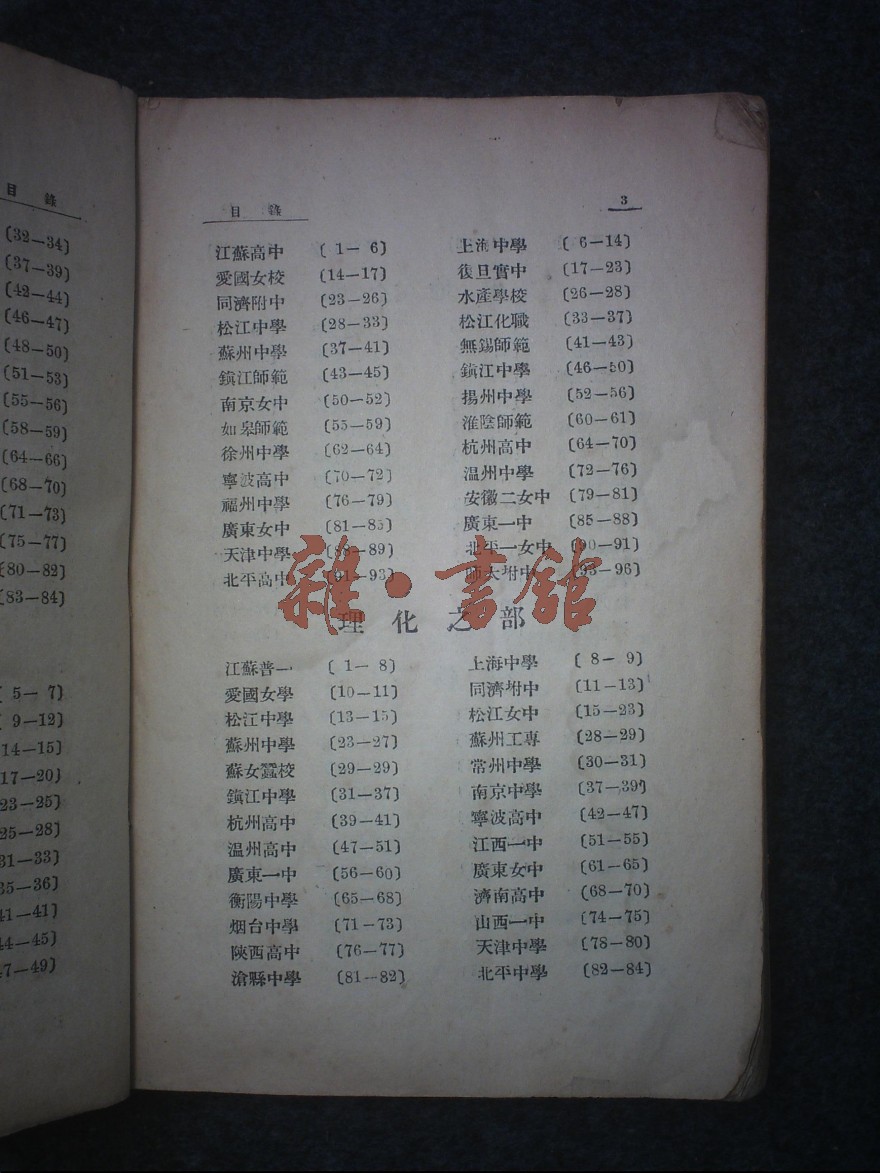 目 錄
(32—34)
(37—39)
(42—44)
(46—47)
(48—50)
(51—53)
(55—56)
(58—59)
(64—66)
(68—70)
(71—73)
(75—77)
(80—82)
(83—84)
5— 7)
9—12)
14—15)
17—20)
23—25)
25—28)
31—33)
35—36)
41—41)
44—45)
47—49)
目 錄 3
江蘇高中 ( 1— 6) 上海中學 ( 6—14)
愛國女校 (14—17) 復旦實中 (17—23)
同濟附中 (23—26) 水產學校 (26—28)
松江中學 (28—33) 松江化職 (33—37)
蘇州中學 (37—41) 無錫師範 (41—43)
鎮江師範 (43—45) 鎮江中學 (46—50)
南京女中 (50—52) 揚州中學 (52—56)
如皋師範 (55—59) 淮陰師範 (60—61)
徐州中學 (62—64) 杭州高中 (64—70)
寧波高中 (70—72) 温州中學 (72—76)
福州中學 (76—79) 安徽二女中 (79—81)
廣東女中 (81—85) 廣東一中 (85—88)
天津中學 (88—89) 北平一女中 (90—91)
北平高中 (91—93) 師大坿中 (93—96)
雜·書館
理化之部
江蘇普一 ( 1— 8) 上海中學 ( 8— 9)
愛國女學 (10—11) 同濟坿中 (11—13)
松江中學 (13—15) 松江女中 (15—23)
蘇州中學 (23—27) 蘇州工専 (28—29)
蘇女蠶校 (29—29) 常州中學 (30—31)
鎮江中學 (31—37) 南京中學 (37—39)
杭州高中 (39—41) 寧波高中 (42—47)
温州高中 (47—51) 江西一中 (51—55)
廣東一中 (56—60) 廣東女中 (61—65)
衡陽中學 (65—68) 濟南高中 (68—70)
烟台中學 (71—73) 山西一中 (74—75)
陝西高中 (76—77) 天津中學 (78—80)
滄縣中學 (81—82) 北平中學 (82—84)